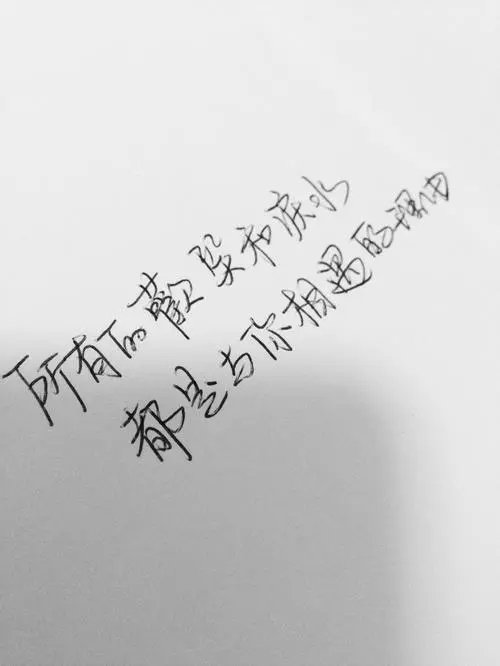 所有的歡笑和淚水
都是与你相遇的理由